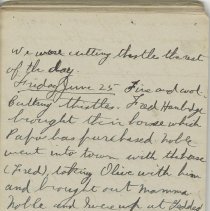 We were cutting thistle the rest
of the day.
Friday June 25 Fine and
Cutting thistles. Fred
brought the in house which
Papa has purchased. Noble
went into town with the
(Fred), taking Olive with him
and brought out Mamma
Noble and up at